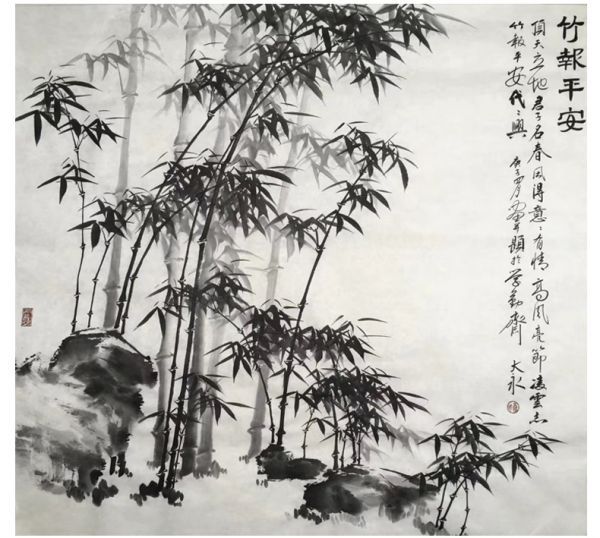 竹報平安
頂天立地君子名春風得意意有情高風亮節凌雲志
竹報平安代代興 庚子四月畫并題於學勤齋 大永